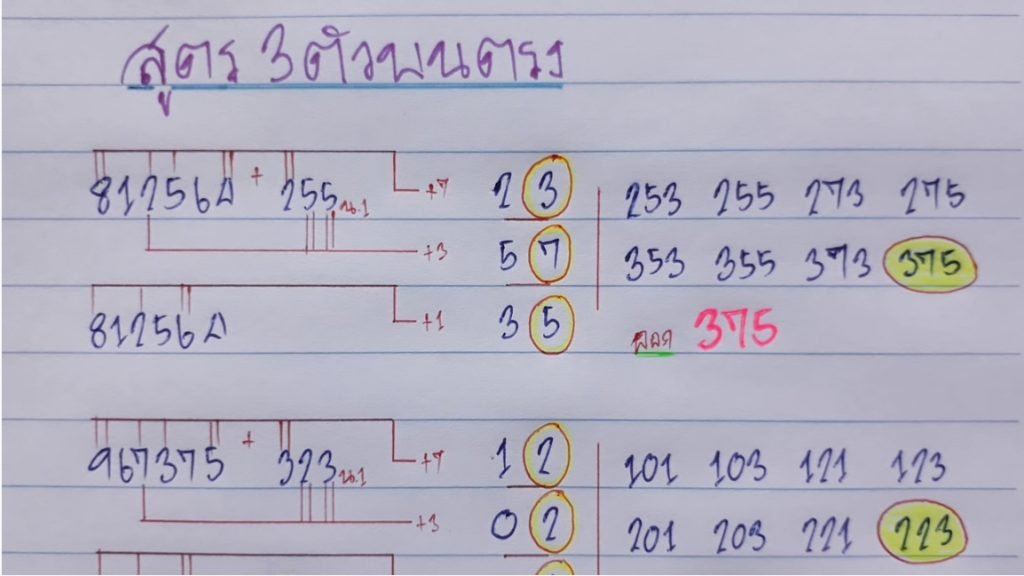 สูตร 3 ตัวบนตรง
812564 + 255 น.1 +7 2 3 253 255 273 275
+3 5 7 353 355 373 375
812564 +1 3 5 ออก 375
967375 + 323 น.1 +7 1 2 101 103 121 123
+3 0 2 201 203 221 223